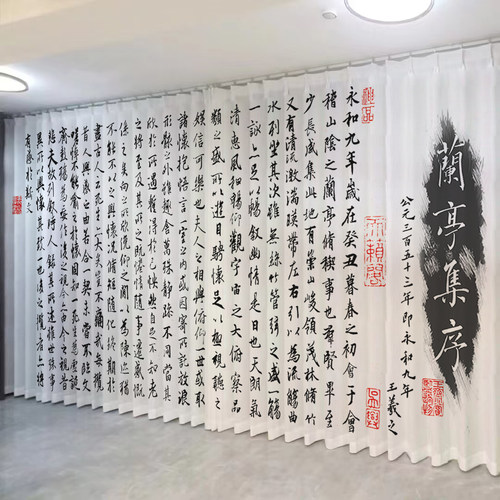 蘭亭集序
公元三百五十三年即永和九年
王羲之
永和九年歲在癸丑暮春之初會于會
稽山陰之蘭亭脩稧事也群賢畢至
少長咸集此地有崇山峻領茂林脩竹
又有清流激湍暎帶左右引以為流觴曲
水列坐其次雖無絲竹管弦之盛一觴
一詠亦足以暢敘幽情是日也天朗氣
清惠風和暢仰觀宇宙之大俯察品
類之盛所以遊目騁懷足以極視聽之
娛信可樂也夫人之相與俯仰一世或取
諸懷抱悟言一室之內或因寄所託放浪
形骸之外雖趣舍萬殊靜躁不同當其
欣於所遇暫得於己快然自足不知老
之將至及其所之既惓情隨事遷感慨
係之矣向之所欣俛仰之間以為陳迹猶
不能不以之興懷況脩短隨化終期於
盡古人云死生亦大矣豈不痛哉每攬
昔人興感之由若合一契未嘗不臨文
嗟悼不能喻之於懷固知一死生為虛誕
齊彭殤為妄作後之視今亦由今之視昔
悲夫故列敘時人錄其所述雖世殊事
異所以興懷其致一也後之攬者亦將
有感於斯文